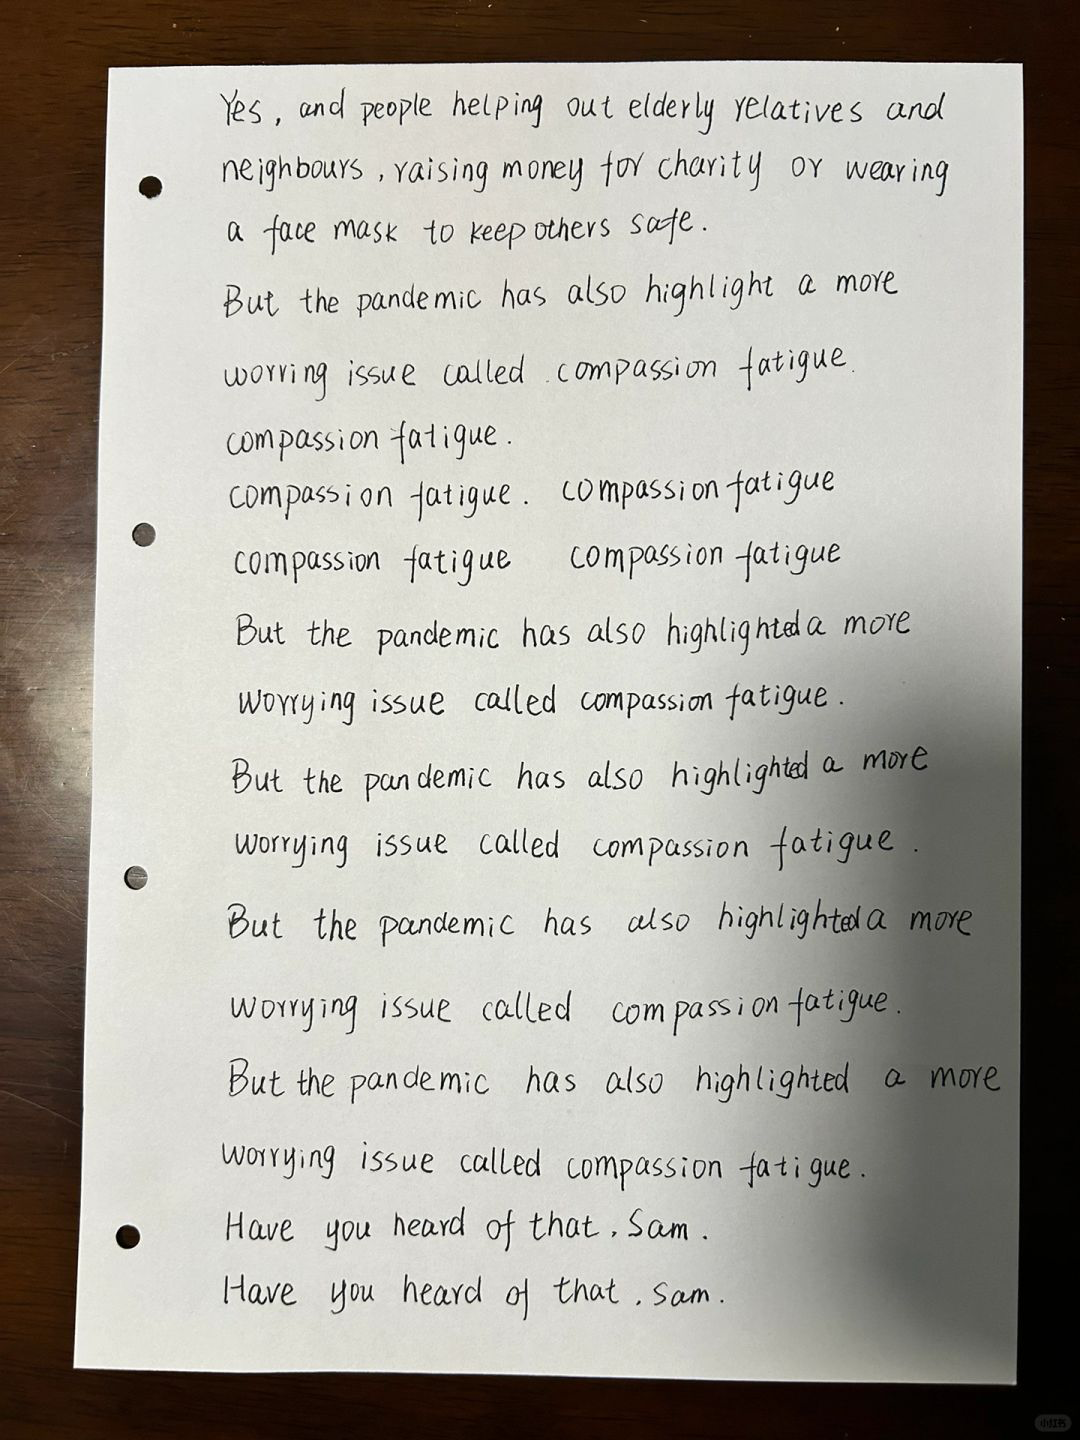 Yes, and people helping out elderly relatives and
neighbours, raising money for charity or wearing
a face mask to keep others safe.
But the pandemic has also highlight a more
worring issue called compassion fatigue.
compassion fatigue.
compassion fatigue. compassion fatigue
compassion fatigue compassion fatigue
But the pandemic has also highlighted a more
worrying issue called compassion fatigue.
But the pandemic has also highlighted a more
worrying issue called compassion fatigue.
But the pandemic has also highlighted a more
worrying issue called compassion fatigue.
But the pandemic has also highlighted a more
worrying issue called compassion fatigue.
Have you heard of that, Sam.
Have you heard of that, Sam.
小红书